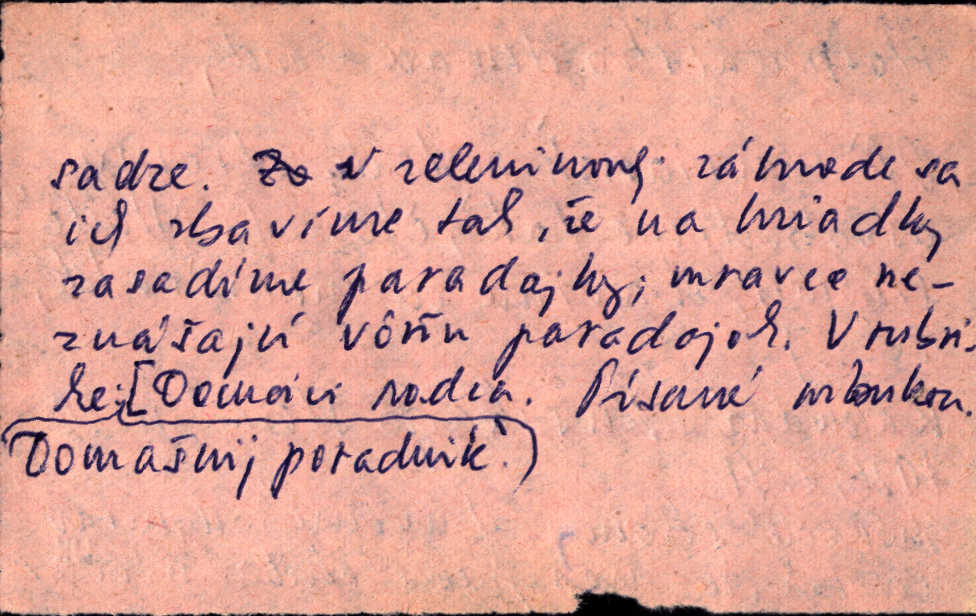 sadze. V zeleninovej záhrade sa
ich zbavíme tak, že na hriadky
zasadíme paradajky; mravce ne-
znášajú vôňu paradajok. V rubri-
ke: [Domáci radca. Písané azbukou.
(Domašnij poradnik.)